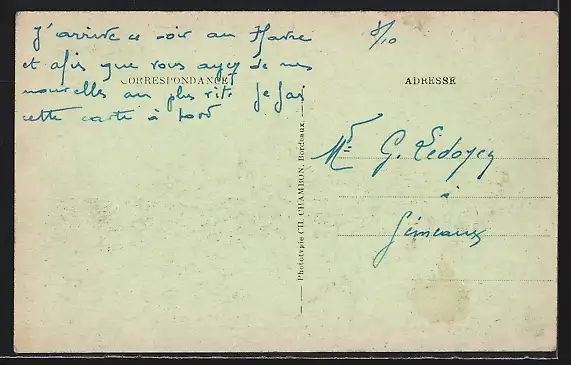 J'arrive ce soir au Havre
et afin que vous ayez de mes
nouvelles au plus vite je fais
cette carte à bord
8/10
CORRESPONDANCE
ADRESSE
Mr G. Ledoyen
à
Gémeaux
Phototypie CH. CHAMBON, Bordeaux